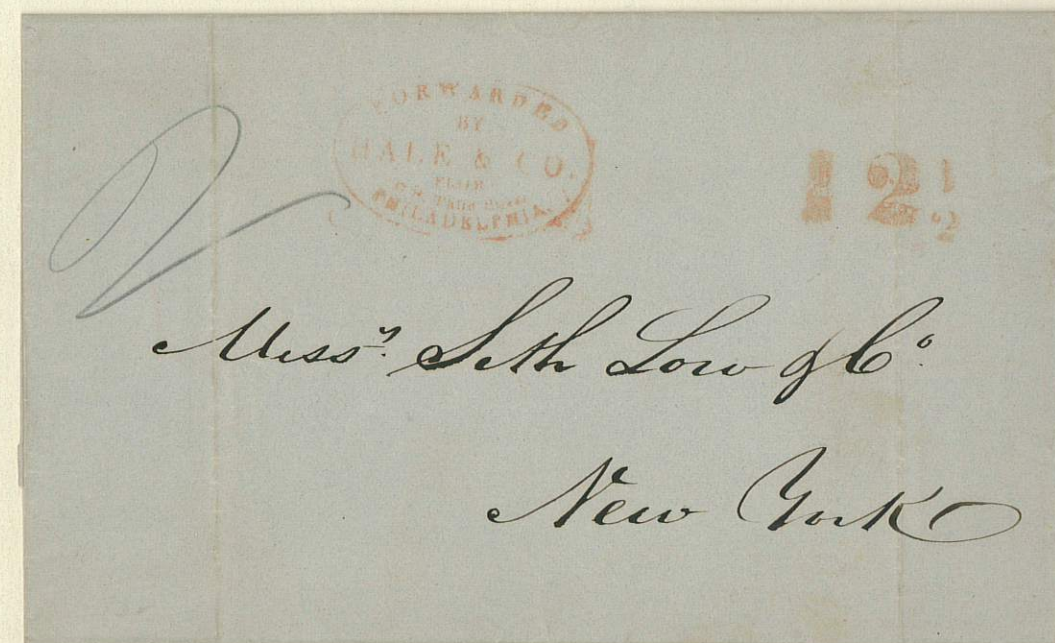 FORWARDED
BY
HALE & CO.
FROM
PHILADELPHIA.
12 1/2
2
Mess.rs Seth Low & Co.
New York